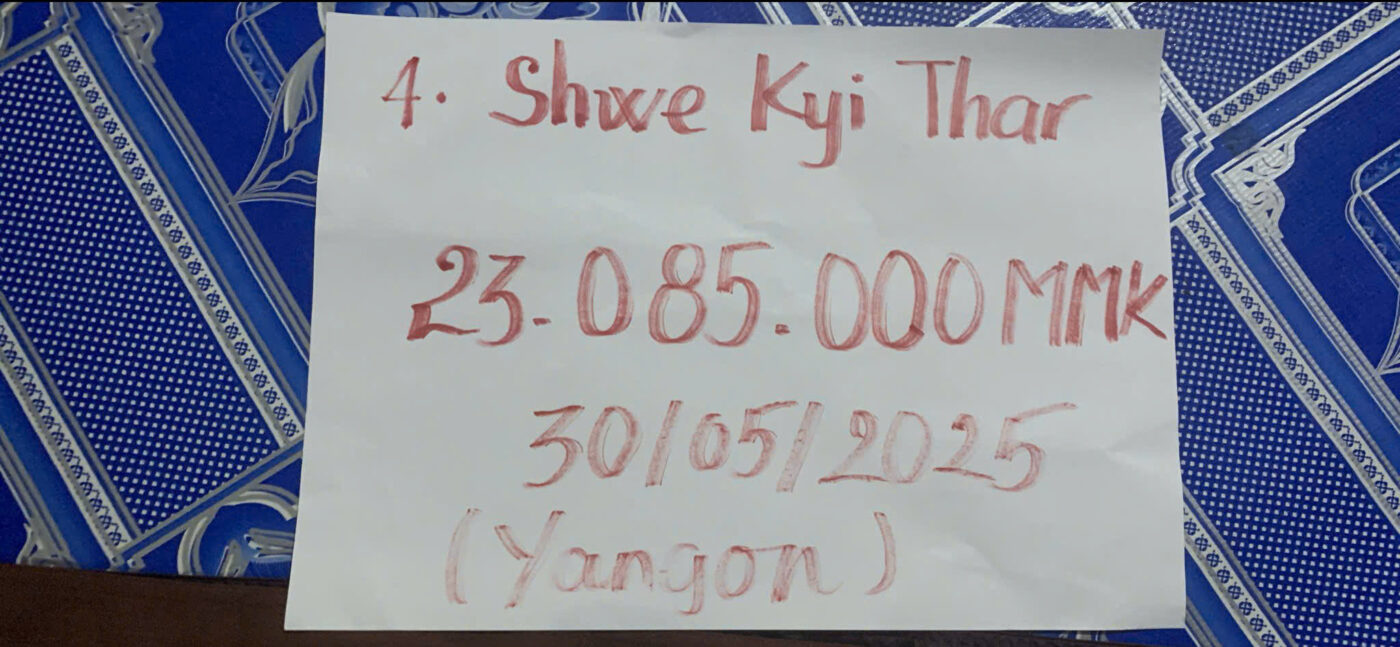 4. Shwe Kyi Thar
23.085.000 MMK
30/05/2025
(Yangon)